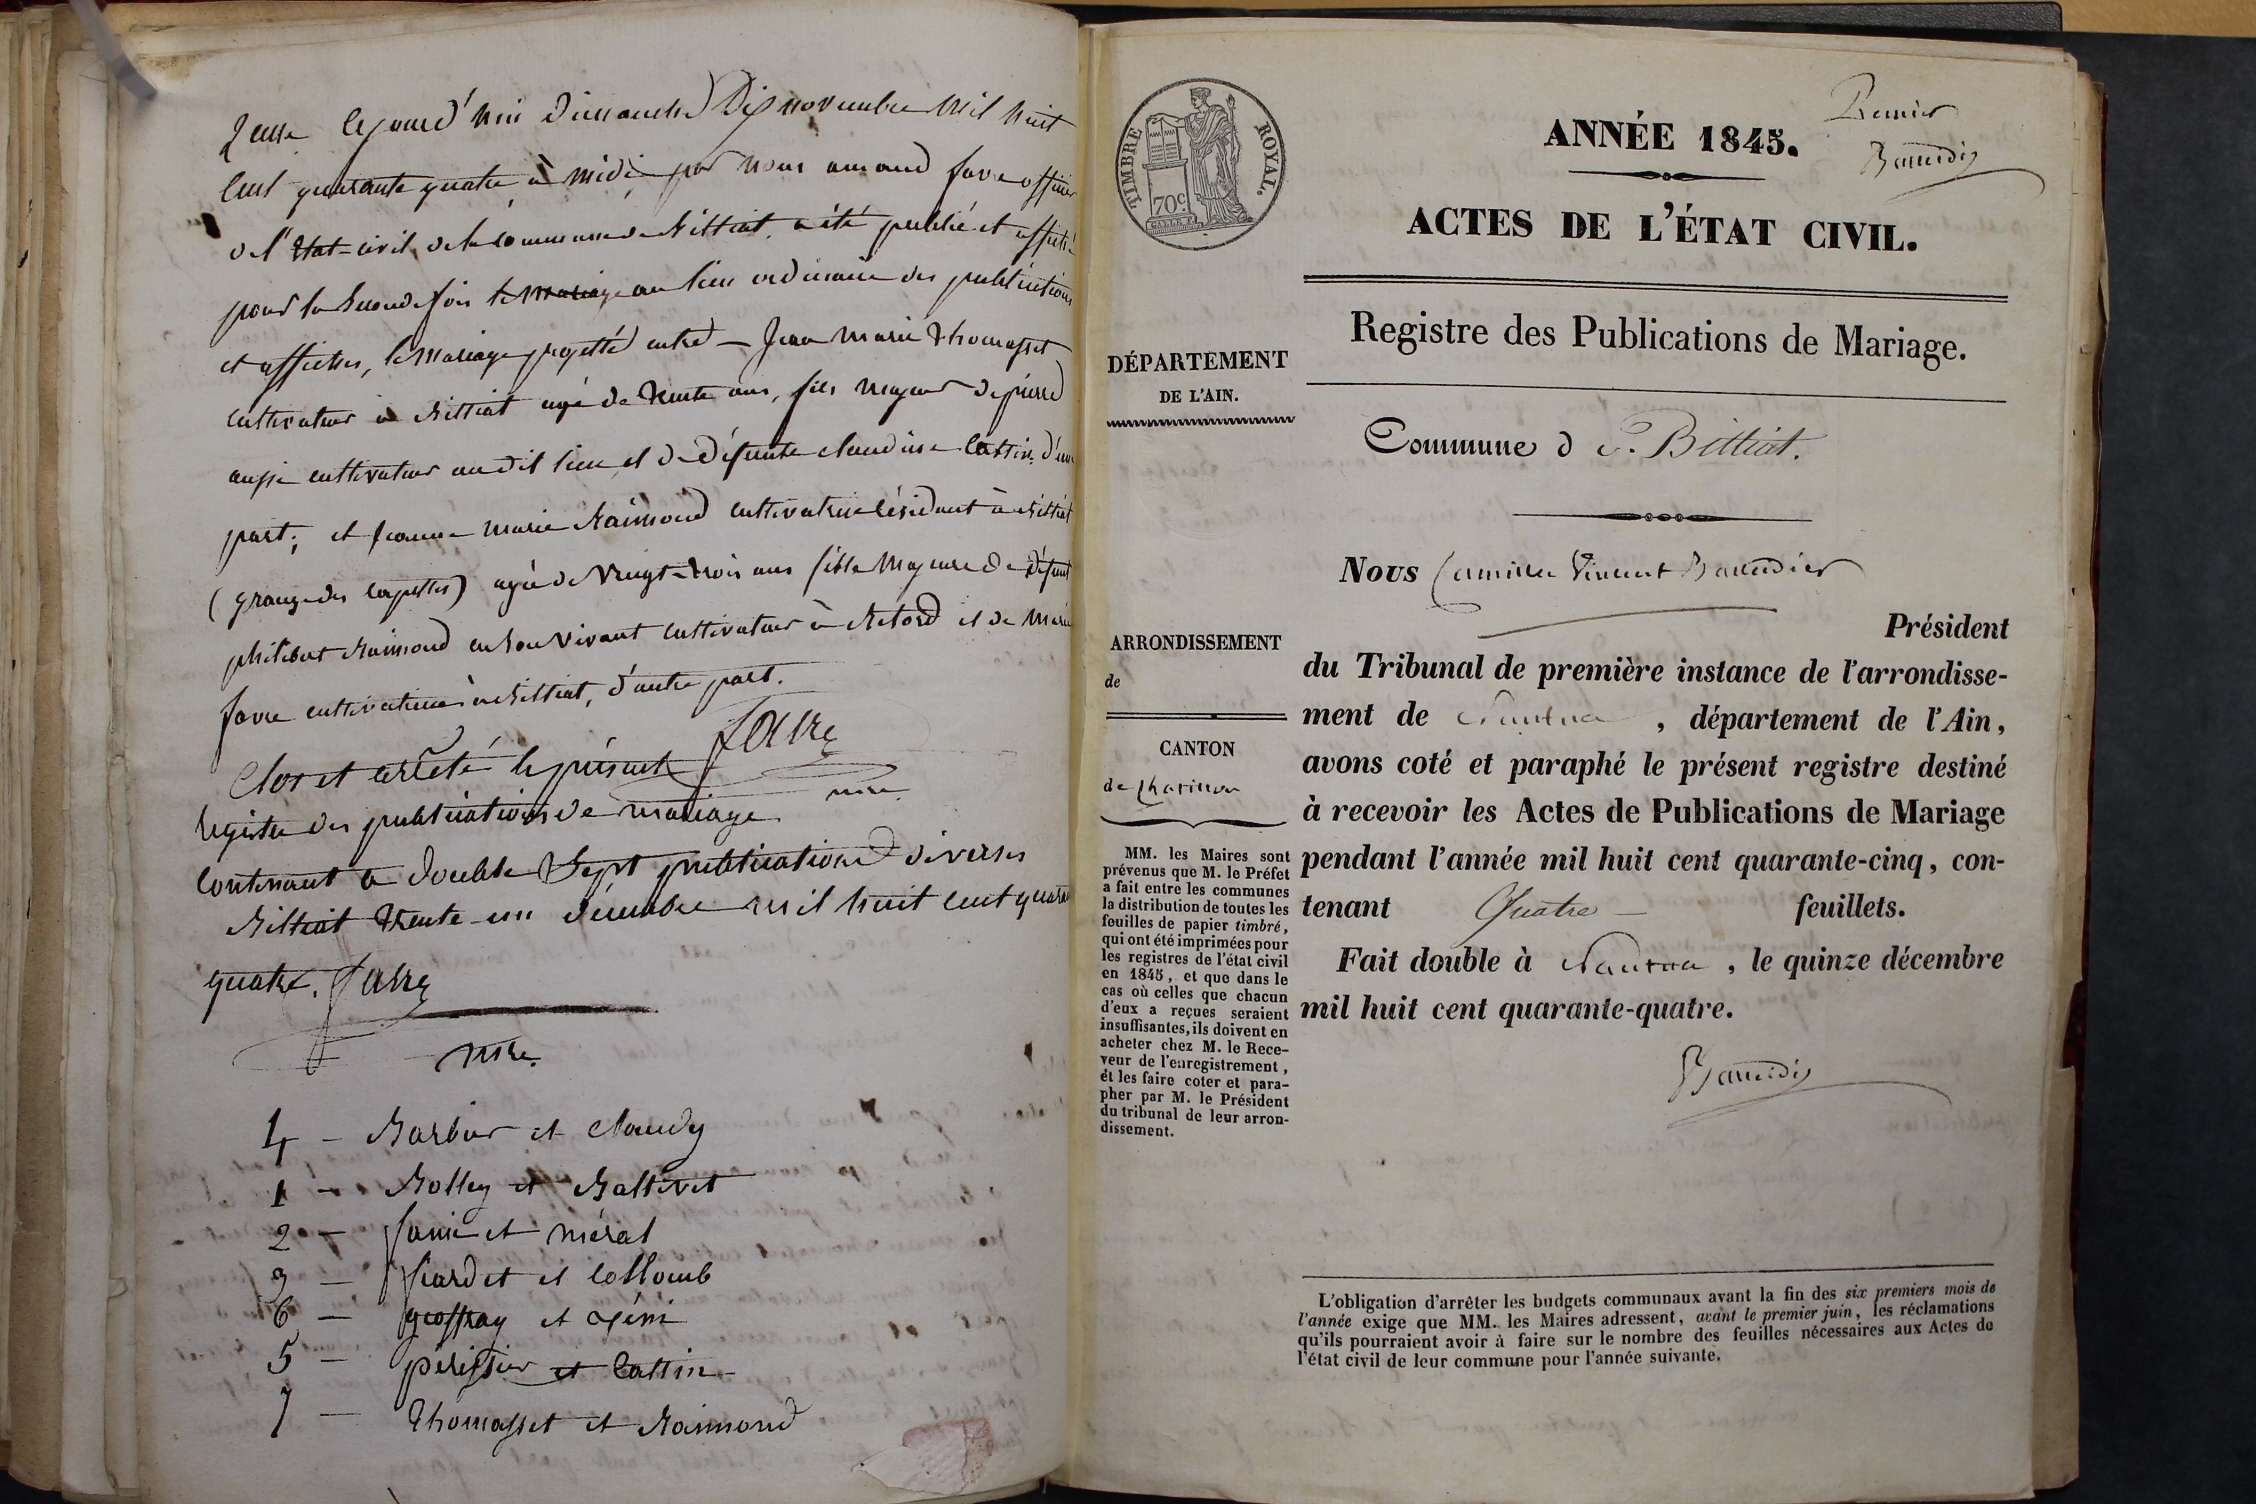 2eme Cejourd'hui dimanche dix novembre mil huit
cent quarante quatre à midi, par nous amand favre officier
de l'état-civil de la commune de Billiat, a été publié et affiché
pour la seconde fois le mariage au lieu ordinaire des publications
et affiches, le mariage projetté entre — Jean Marie Thomasset
cultivateur à Billiat agé de trente ans, fils majeur de pierre
aussi cultivateur audit lieu et de défunte claudine Cattin, d'une
part; et jeanne marie Raimond cultivatrice résidant à Billiat
(grange des ) agée de vingt-trois ans fille majeure de défunt
philibert Raimond en son vivant cultivateur à Retord et de marie
favre cultivatrice à Billiat, d'autre part.
favre
Clos et arrêté le présent
mre.
registre des publications de mariage
contenant à double sept publications diverses
Billiat trente-un décembre mil huit cent quarante
quatre. favre
mre.
4 – Barbier et Claudy
1 – Rolley et Ballivet
2 – famie et méral
3 – fiardet et Collomb
6 – geoffray et
5 – périssier et Cattin –
7 – Thomasset et Raimond
TIMBRE ROYAL.
70c.
Premier
ANNÉE 1845.
Baudier
ACTES DE L'ÉTAT CIVIL.
Registre des Publications de Mariage.
DÉPARTEMENT
DE L'AIN.
Commune de Billiat.
Nous Camille Vincent Baudier
Président
ARRONDISSEMENT
de
du Tribunal de première instance de l'arrondisse-
ment de Nantua , département de l'Ain,
CANTON
de Chatillon
avons coté et paraphé le présent registre destiné
à recevoir les Actes de Publications de Mariage
pendant l'année mil huit cent quarante-cinq, con-
tenant Quatre — feuillets.
Fait double à Nantua , le quinze décembre
mil huit cent quarante-quatre.
Baudier
MM. les Maires sont
prévenus que M. le Préfet
a fait entre les communes
la distribution de toutes les
feuilles de papier timbré,
qui ont été imprimées pour
les registres de l'état civil
en 1845, et que dans le
cas où celles que chacun
d'eux a reçues seraient
insuffisantes, ils doivent en
acheter chez M. le Rece-
veur de l'enregistrement,
et les faire coter et para-
pher par M. le Président
du tribunal de leur arron-
dissement.
L'obligation d'arrêter les budgets communaux avant la fin des six premiers mois de
l'année exige que MM. les Maires adressent, avant le premier juin, les réclamations
qu'ils pourraient avoir à faire sur le nombre des feuilles nécessaires aux Actes de
l'état civil de leur commune pour l'année suivante.